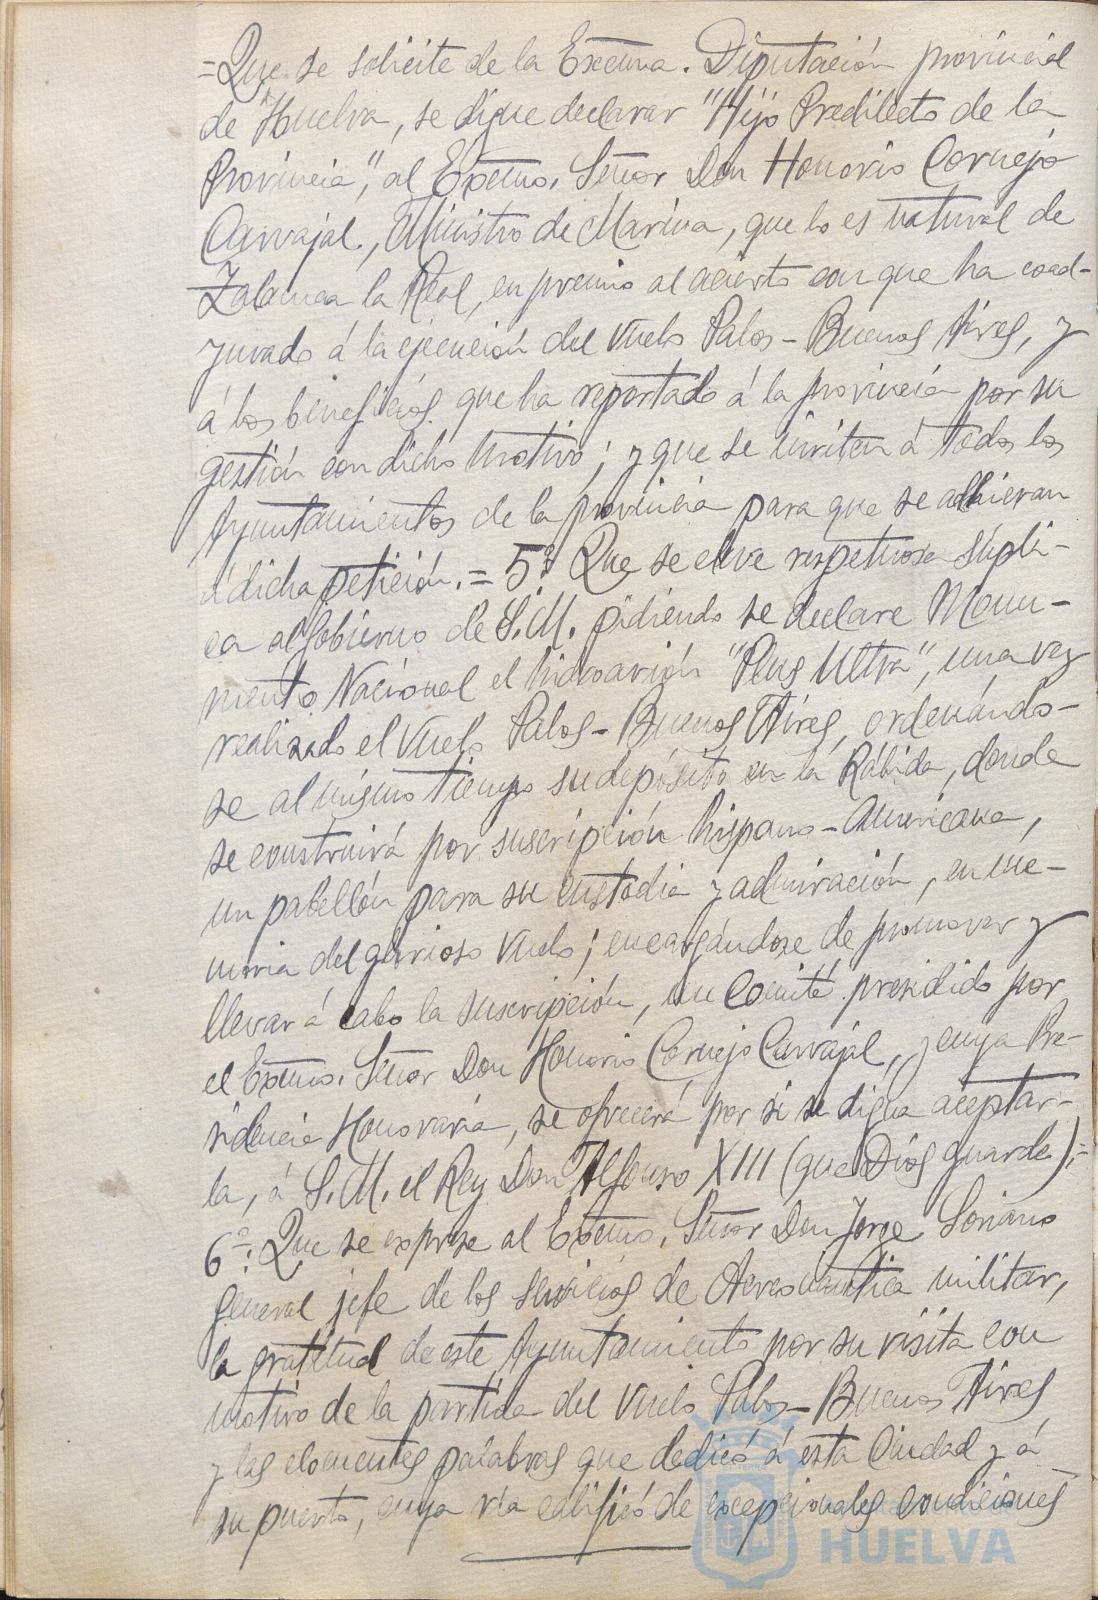 =Que se solicite de la Excma. Diputación provincial
de Huelva, se digne declarar "Hijo Predilecto de la
Provincia", al Excmo. Señor Don Honorio Cornejo
Carvajal, Ministro de Marina, que lo es natural de
Zalamea la Real, en premio al acierto con que ha coad-
yuvado á la ejecución del vuelo Palos-Buenos Aires, y
á los beneficios que ha reportado á la provincia por su
gestión con dicho motivo; y que se inviten á todos los
Ayuntamientos de la provincia para que se adhieran
á dicha petición.= 5º Que se eleve respetuosa súpli-
ca al Gobierno de S.M. pidiendo se declare Monu-
mento Nacional el hidroavión "Plus Ultra", una vez
realizado el vuelo Palos-Buenos Aires, ordenándo-
se al mismo tiempo su depósito en la Rábida, donde
se construirá por suscripción hispano-americana,
un pabellón para su custodia y admiración, en me-
moria del glorioso vuelo; encargándose de promover y
llevar á cabo la suscripción, un Comité presidido por
el Excmo. Señor Don Honorio Cornejo Carvajal, y cuya Pre-
sidencia Honoraria, se ofrecerá por si se digna aceptar-
la, á S.M. el Rey Don Alfonso XIII (que Dios guarde);=
6º: Que se exprese al Excmo. Señor Don Jorge Soriano
General jefe de los servicios de Aeronáutica militar,
la gratitud de este Ayuntamiento por su visita con
motivo de la partida del vuelo Palos-Buenos Aires
y las elocuentes palabras que dedicó á esta Ciudad y á
su puerto, cuya ría calificó de excepcionales condiciones
Ayuntamiento de
HUELVA